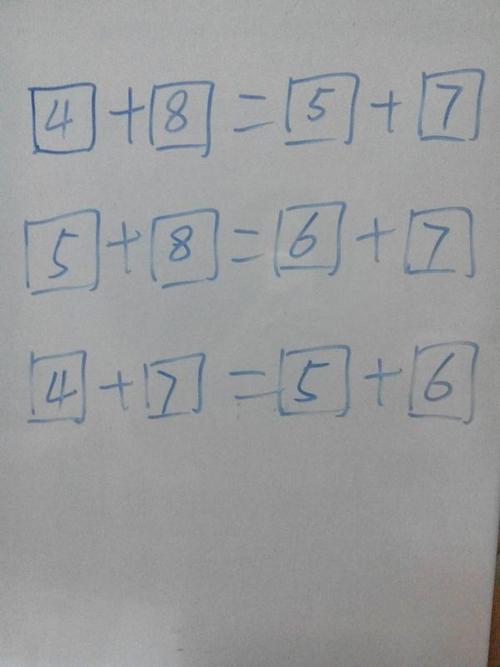 4 + 8 = 5 + 7
5 + 8 = 6 + 7
4 + 7 = 5 + 6